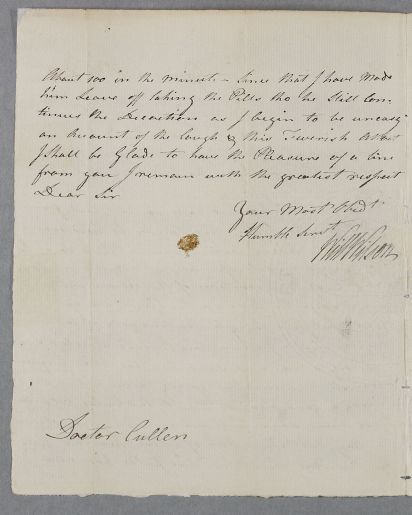 About 100 in the minute – Since that I have Made
him Leave off taking the Pills tho he Still Con-
tinues the Decoction as I begin to be uneasy
on Account of the Cough & this Feverish
I shall be Glade to have the Pleasure of a line
from you I remain with the greatest respect
Dear Sir
Your Most Obedt
Humble Servt
Wilson
Doctor Cullen